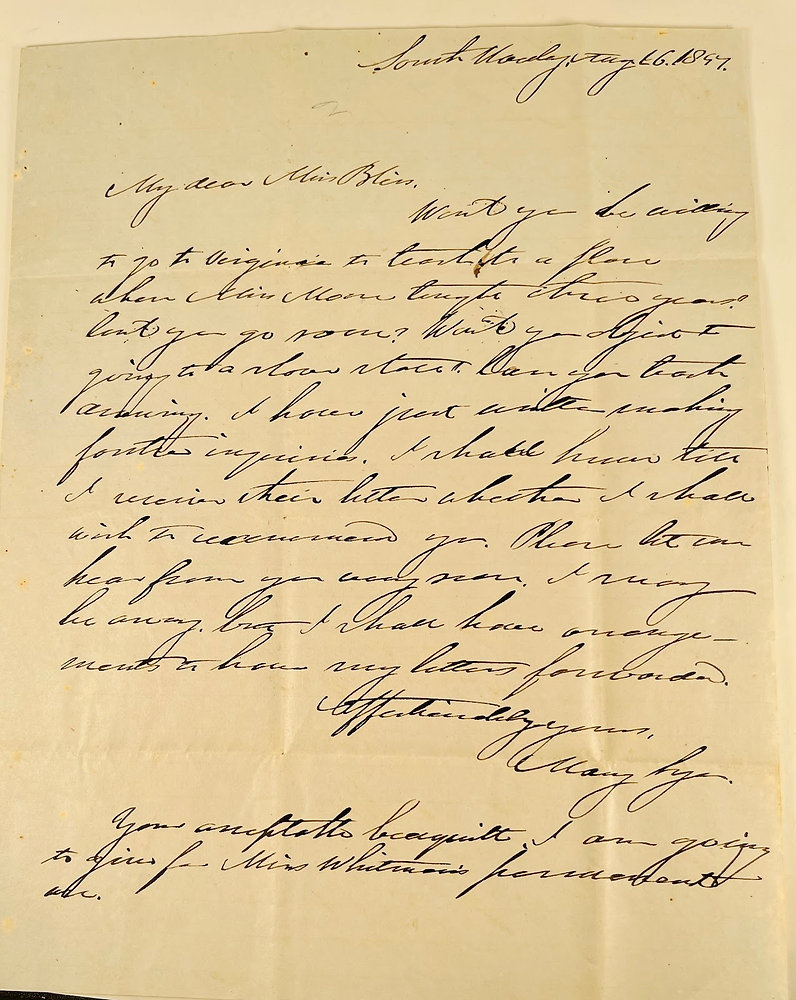 South Hadley, Aug 26. 1847.
My dear Miss Bliss,
Won't you be willing
to go to Virginia to teach to a place
where Miss Moore taught three years?
Can't you go soon? Won't you object to
going to a slave state? Can you teach
drawing. I have just written making
further inquiries. I shall know till
I receive their letter whether I shall
wish to recommend you. Please let me
hear from you very soon. I may
be away, but I shall have arrange-
ments to have my letters forwarded.
Affectionately yours,
Mary Lyon.
Your acceptable bedquilt, I am going
to give for Miss Whitman's permanent
use.